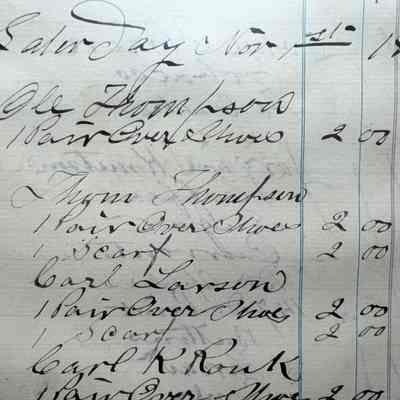 Saturday Nov 1st 1
Ole Thompson
1 Pair Over Shoes 2 00
Thom Thompson
1 Pair Over Shoes 2 00
1 Scarf 2 00
Carl Larson
1 Pair Over Shoes 2 00
1 Scarf 2 00
Carl K Rouk
1 Pair Over Shoes 2 00